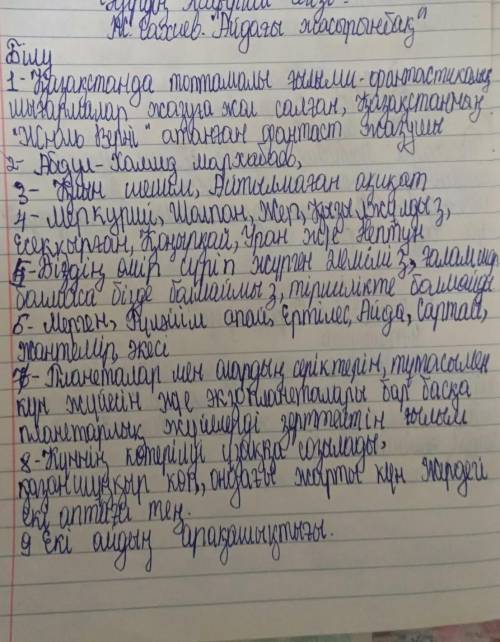 Ж. Сахиев. "Айдағы жасырынбақ"
Білу
1- Қазақстанда топтамалы ғылыми-фантастикалық
шығармалар жазуға жол салған, Қазақстанның
"Жюль Верні" атанған фантаст жазушы
2- Абдул-Хамид Мархабаев,
3- Қиын шешім, Айтылмаған ақиқат
4- Меркурий, Шолпан, Жер, Қызыл жұлдыз,
Есекқырған, Қоңырқай, Уран жде Нептун
5- Біздің өмір сүріп жүрген әлеміміз, ғалам
болмаса бізде болмаймыз, тіршілікте болмайды
6- Мерген, апай, Ертілес, Айда, Сартай,
Жантемір, әкесі
7- Планеталар мен олардың серіктерін, тұтасымен
күн жүйесін жде экзопланеталары бар басқа
планетарлық жүйелерді зерттейтін ғылым
8- Күннің көтерілуі ұзаққа созылады,
қазаншұңқыр көп, ондағы жарты күн жердегі
екі аптаға тең.
9 Екі айдың арақашықтығы.